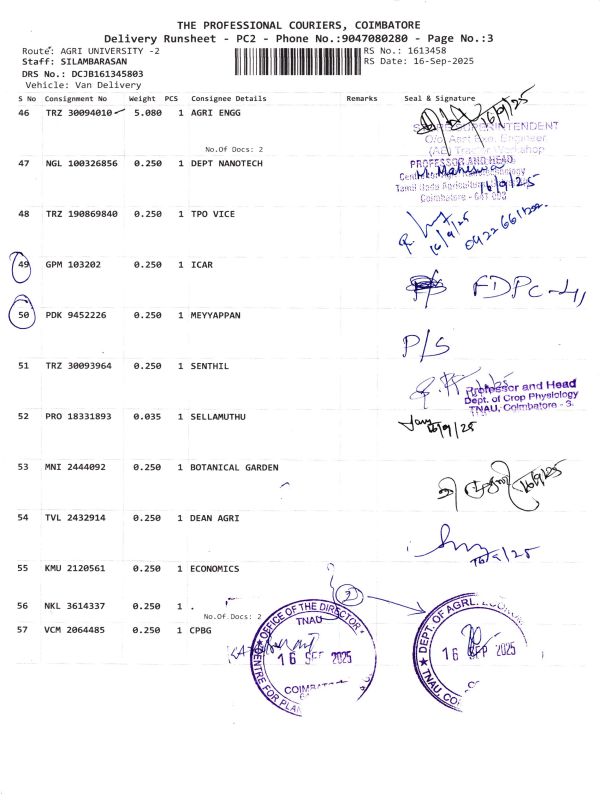 THE PROFESSIONAL COURIERS, COIMBATORE
Delivery Runsheet - PC2 - Phone No.:9047080280 - Page No.:3
Route: AGRI UNIVERSITY -2
RS No.: 1613458
Staff: SILAMBARASAN
RS Date: 16-Sep-2025
DRS No.: DCJB161345803
Vehicle: Van Delivery
S No Consignment No Weight PCS Consignee Details Remarks Seal & Signature
46 TRZ 30094010 5.080 1 AGRI ENGG 16/9/25
No.Of Docs: 2
SUPERINTENDENT
O/o Asst Exe. Engineer
(AE) Tractor Workshop
47 NGL 100326856 0.250 1 DEPT NANOTECH
PROFESSOR AND HEAD
M. Maheswa
16/9/25
Tamil Nadu Agricultural
Coimbatore - 641 003
48 TRZ 190869840 0.250 1 TPO VICE
16/9/25
49 GPM 103202 0.250 1 ICAR
FDPC-4,
50 PDK 9452226 0.250 1 MEYYAPPAN
P/S
51 TRZ 30093964 0.250 1 SENTHIL
Professor and Head
Dept. of Crop Physiology
TNAU, Coimbatore - 3.
52 PRO 18331893 0.035 1 SELLAMUTHU
16/9/25
53 MNI 2444092 0.250 1 BOTANICAL GARDEN
16/9/25
54 TVL 2432914 0.250 1 DEAN AGRI
16/9/25
55 KMU 2120561 0.250 1 ECONOMICS
56 NKL 3614337 0.250 1 .
No.Of Docs: 2
57 VCM 2064485 0.250 1 CPBG
OFFICE OF THE DIRECTOR
TNAU
16 SEP 2025
CENTRE FOR PLAN
DEPT. OF AGRL.
16 SEP 2025
TNAU,